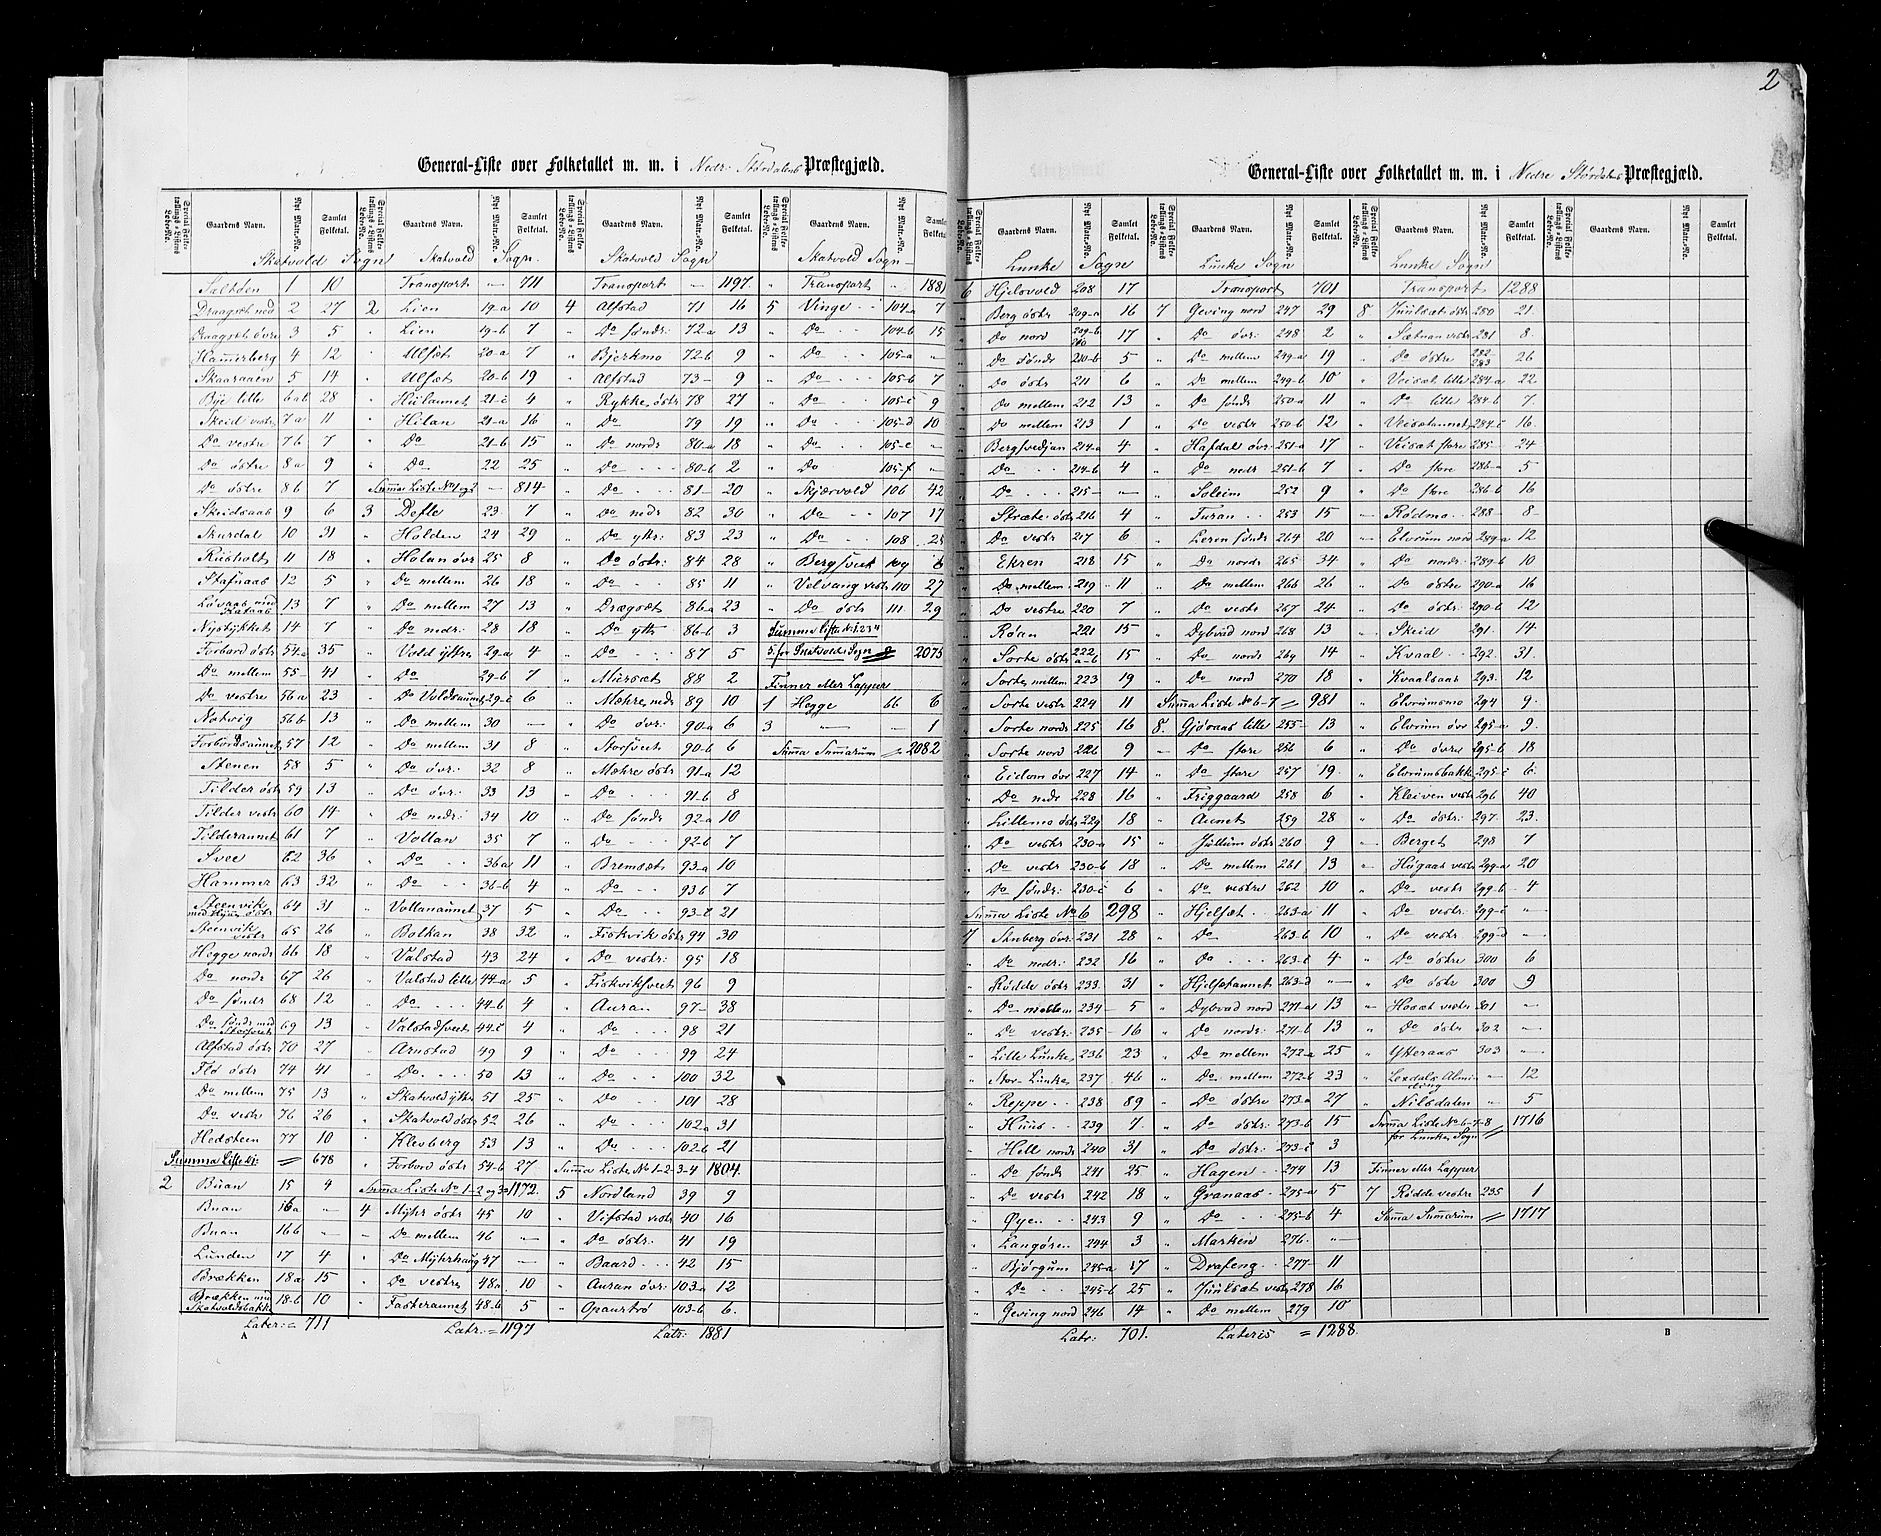 2
General-Liste over Folketallet m. m. i Nedr. Størdalens Præstegjæld.
Gaardens Navn. Nyt Matr.-No. Samlet Folketal.
Skatvold Sogn
Saltden 1 10
Draagset ned 2 27
Draagset övre 3 5
Hamerberg 4 12
Skaaraaen 5 14
Bye lille 6 ab 28
Skeid vestr 7 a 11
Do vestre 7 b 7
Do östre 8 a 9
Do östre 8 b 7
Skeidsaas 9 6
Skurdal 10 31
Rusholt 11 18
Stafnaas 12 5
Løvaas med 13 7
Nystykket 14 7
Forbord östr 54-a 35
Do mellem 55 41
Do vestre 56 a 23
Notvig 56 b 13
Forbordsaunet 57 12
Stenen 58 5
Tilder östr 59 13
Tilder vestr 60 14
Tilderaunet 61 7
Svee 62 36
Hammer 63 32
Steenvik 64 31
Steenvik vestr 65 26
Hegge nordr 66 18
Do nordr 67 26
Do søndr 68 12
Do søndr med 69 13
Alfstad östr 70 27
Flø östr 74 41
Do mellem 75 13
Do vestr 76 26
Hedsteen 77 10
Summa Liste 1: 678
2 Buan 15 4
Buan 16a "
Buan 16b "
Lunden 17 4
Brækken 18 a 15
Brækken med Skatvoldsbakk 18-b 10
Latr: = 711
A
Skatvold Sogn.
Transport — 711
2 Lien 19-a 10
" Lien 19-b 7
" Ulfset 20-a 7
" Ulfset 20-b 19
" Hulaunet 21-c 4
" Hilan 21-a 16
" Do 21-b 15
" Do 22 25
Summa Liste No 1 og 2 — 814
3 Defle 23 7
" Holden 24 29
" Holan övr 25 8
" Do mellem 26 18
" Do mellem 27 13
" Do nedr: 28 18
" Vold yttre 29-a 4
" Do 29-b 7
" Do Voldsaunet 29-c 6
" Do mellem 30 —
" Do mellem 31 8
" Do övr: 32 8
" Do övr: 33 13
" Do nedr: 34 10
" Vollan 35 7
" Do 36 a 11
" Do 36-b 4
" Vollanaunet 37 5
" Balkan 38 32
" Valstad 43 24
" Valstad lille 44-a 5
" Do 44-b 4
" Valstadsveet 44-c 4
" Arnstad 49 9
" Do 50 13
" Skatvold ytr 51 25
" Skatvold östr 52 26
" Klevberg 53 13
" Forbord östr 54-b 27
Summa Liste No 1-2 og 3 = 1172.
4 Myhr östr 45 10
" Do mellem 46 —
" Do Myhrhaug 47 —
" Do vestre 48 a 10
" Faskeraunet 48-b 5
Latr: = 1197
Skatvold Sogn
Transport — 1197
4 Alfstad 71 16
" Do søndr: 72-a 13
" Bjerkmo 72-b 9
" Alfstad 73 — 9
" Rykke östr 78 27
" Do 79 19
" Do nordr 80-a 18
" Do 80-b 2
" Do 81 — 20
" Do nedr 82 30
" Do yttr: 83 23
" Do östr: 84 28
" Do 85 11
" Drægset 86-a 23
" Do yttr 86-b 3
" Do 87 5
" Miirset 88 2
" Mæhre nedr 89 10
" Do övr: 90-a 6
" Storsveet 90-b 6
" Mæhre östr 91-a 12
" Do 91-b 8
" Do søndr 92-a 10
" Do 92-b 7
" Bremset 93-a 10
" Do 93 b 7
" Do 93-c 21
" Fiskvik östr 94 30
" Do vestr: 95 18
" Fiskviksveet 96 9
" Auran 97 — 38
" Do 98 21
" Do 99 24
" Do 100 32
" Do 101 28
" Do 102 a 31
" Do 102-b 21
Summa Liste No 1-2-3-4 1804.
5 Nordland 39 9
" Vifstad vestr 40 16
" Do östr: 41 19
" Baard 42 15
" Auran övr: 103-a 12
" Opaustrø 103-b 6.
Latr: 1881
Skatvold Sogn
Transport " 1881
5 Vinge 104-a 7
" Do 104-b 15
" Do 105-a "
" Do 105-b 7
" Do 105-c 9
" Do 105-d 10
" Do 105-e —
" Do 105-f —
" Skjærvold 106 42
" Do 107 17
" Do 108 25
" Bergsveet 109 6
" Velvang vestr 110 27
" Do östr 111 29
Summa Liste No 1 2 3 4
5 for Skatvolds Sogn 2075
Finner eller Lapper
1 Hegge 66 6
3 " 1
Summa Summarum = 2082
General-Liste over Folketallet m. m. i Nedre Størdalens Præstegjæld.
Lunke Sogn
6 Hjelsvold 208 17
" Berg östr 209-a 16
" Do nord 209-b 210 17
" Do søndr 210-b 5
" Do östr 211 6
" Do mellem 212 13
" Do mellem 213 1
" Bergsvedjan 214-a 4
" Do 214-b 4
" Do 215 — —
" Stræte östr 216 4
" Do vestr 217 6
" Ekren 218 15
" Do mellem 219 11
" Do vestre 220 7
" Røan 221 15
" Sorte östr 222 a-b 15
" Sorte mellem 223 19
" Sorte vestr 224 11
" Sorte nordr 225 16
" Sorte nord 226 9
" Eidom övr 227 14
" Do nedr 228 16
" Lillemo östr 229 18
" Do vestr 230-a 15
" Do vestr 230-b 18
" Do søndr: 230-c 6
Summa Liste No 6 298
7 Stuberg övr: 231 28
" Do nedr: 232 16
" Rödde östr 233 31
" Do mellem 234 — 5
" Do vestr: 235 — 16
" Lille Lunke 236 23
" Stor-Lunke 237 46
" Reppe 238 89
" Huus 239 7
" Hell nordr 240 31
" Do søndr 241 25
" Do vestr 242 18
" Øyen 243 9
" Langøren 244 3
" Bjørgum 245-a 17
" Do 245-b 25
" Geving nord 246 14
Latr: 701.
Lunke Sogn
Transport 701
7 Geving nord 247 29
" Do övr: 248 2
" Do mellem 249-a 19
" Do mellem 249-b 10
" Do søndr 250-a 11
" Do vestr 250-b 12
" Hafdal övr 251-a 17
" Do nedr 251-b 7
" Soleim 252 9
" Turan 253 15
" Leren søndr 264 20
" Do nordr 265 34
" Do mellem 266 26
" Do vestr 267 24
" Dybvad nord 268 13
" Do nordr 269 14
" Do nord 270 18
Summa Liste No 6-7 = 981
8. Gjøraas lille 255 — 13
" Do store 256 6
" Do store 257 19.
" Friggaard 258 6
" Aunet 259 28
" Jullum östr 260 9
" Do mellem 261 13
" Do vestre 262 10
" Hjelset 263-a 11
" Do 263-b 10
" Do 263-c 4
" Hjelsetaunet 263-d "
" Dybvad nord 271-a 13
" Do nordr: 271-b 13
" Do mellem 272-a 25
" Do mellem 272-b 23
" Do östre 273-a 27
" Do östr: 273-b 15
" Do östr: 273-c 3
" Hagen 274 13
" Granaas 275-a 5
" Do 275-b 4
" Marken 276. —
" Drafeng 277 — 11
" Juulset vestr 278 16
" Do mellem 279 10
Lateris = 1288.
Lunke Sogn
Transport 1288
8 Juulset östr 280 21.
" Sætnan vestr 281 8.
" Do östre 282 283 26
" Veiset lille 284-a 22.
" Do lille 284-b 7
" Veisetaunet 284-c 16.
" Veiset store 285 — 24
" Do store 286-a 5
" Do store 286-b 16
" Rødmo 288 — 8
" Elvrum nord 289-a 12
" Do nordr 289-b 10
" Do östre 290-a 16
" Do östr: 290-b 12
" Skeid 291. 14
" Kvaal 292. 31.
" Kvaalsaas 293. 12
" Elvrumsmo 294 9.
" Elvrum övr 295-a 9.
" Do övre 295-b 18
" Elvrumsbakk 295-c 6.
" Kleiven vestr 296 40
" Do östr: 297. 23.
" Berget 298 7
" Høgaas vestr 299-a 20
" Do vestr 299-b 4
" Do vestr: 299-c "
" Do vestr 299-d "
" Do östre 300 6
" Do östr 300 9
" Hoset vestr 301 "
" Do östr 302 "
" Ytteraas 303 "
" Lexdals Almindeng " 12
" Nilsdalen " 5
Summa Liste No 6-7-8 1716
for Lunke Sogn
Finner eller Lapper
7 Rødde vestre 235 1
Summa Summarum = 1717
B